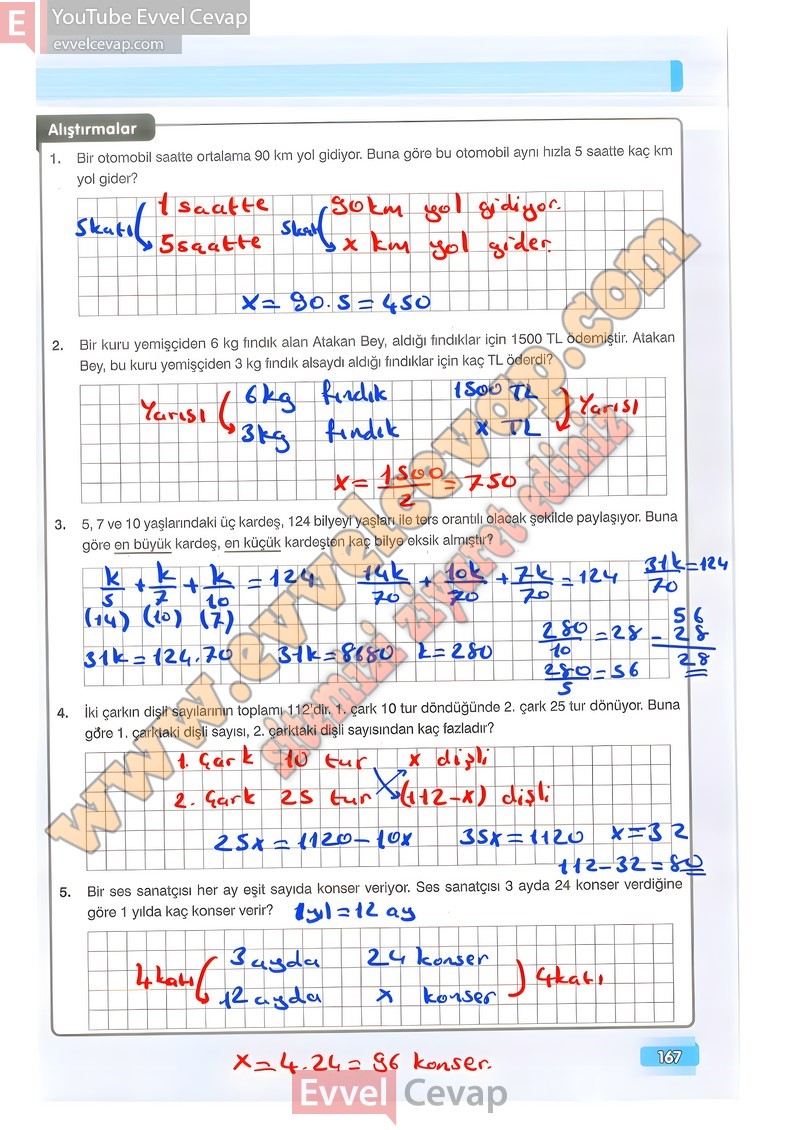 E YouTube Evvel Cevap
evvelcevap.com
Alıştırmalar
1. Bir otomobil saatte ortalama 90 km yol gidiyor. Buna göre bu otomobil aynı hızla 5 saatte kaç km
yol gider?
5katı 1 saatte 5katı 90km yol gidiyor.
5saatte x km yol gider.
x = 90.5 = 450
2. Bir kuru yemişçiden 6 kg fındık alan Atakan Bey, aldığı fındıklar için 1500 TL ödemiştir. Atakan
Bey, bu kuru yemişçiden 3 kg fındık alsaydı aldığı fındıklar için kaç TL öderdi?
Yarısı 6kg fındık 1500 TL Yarısı
3kg fındık x TL
x = 1500/2 = 750
3. 5, 7 ve 10 yaşlarındaki üç kardeş, 124 bilyeyi yaşları ile ters orantılı olacak şekilde paylaşıyor. Buna
göre en büyük kardeş, en küçük kardeşten kaç bilye eksik almıştır?
k/5 + k/7 + k/10 = 124 14k/70 + 10k/70 + 7k/70 = 124 31k/70 = 124
(14) (10) (7)
31k = 124.70 31k = 8680 k = 280 280/10 = 28 56
280/5 = 56 - 28
28
4. İki çarkın dişli sayılarının toplamı 112'dir. 1. çark 10 tur döndüğünde 2. çark 25 tur dönüyor. Buna
göre 1. çarktaki dişli sayısı, 2. çarktaki dişli sayısından kaç fazladır?
1. Çark 10 tur x dişli
2. Çark 25 tur (112-x) dişli
25x = 1120 - 10x 35x = 1120 x = 32
112 - 32 = 80
5. Bir ses sanatçısı her ay eşit sayıda konser veriyor. Ses sanatçısı 3 ayda 24 konser verdiğine
göre 1 yılda kaç konser verir? 1yıl = 12 ay
4katı 3 ayda 24 konser 4katı
12 ayda x konser
x = 4.24 = 96 konser.
167
Evvel Cevap
www.evvelcevap.com
sitemizi ziyaret ediniz